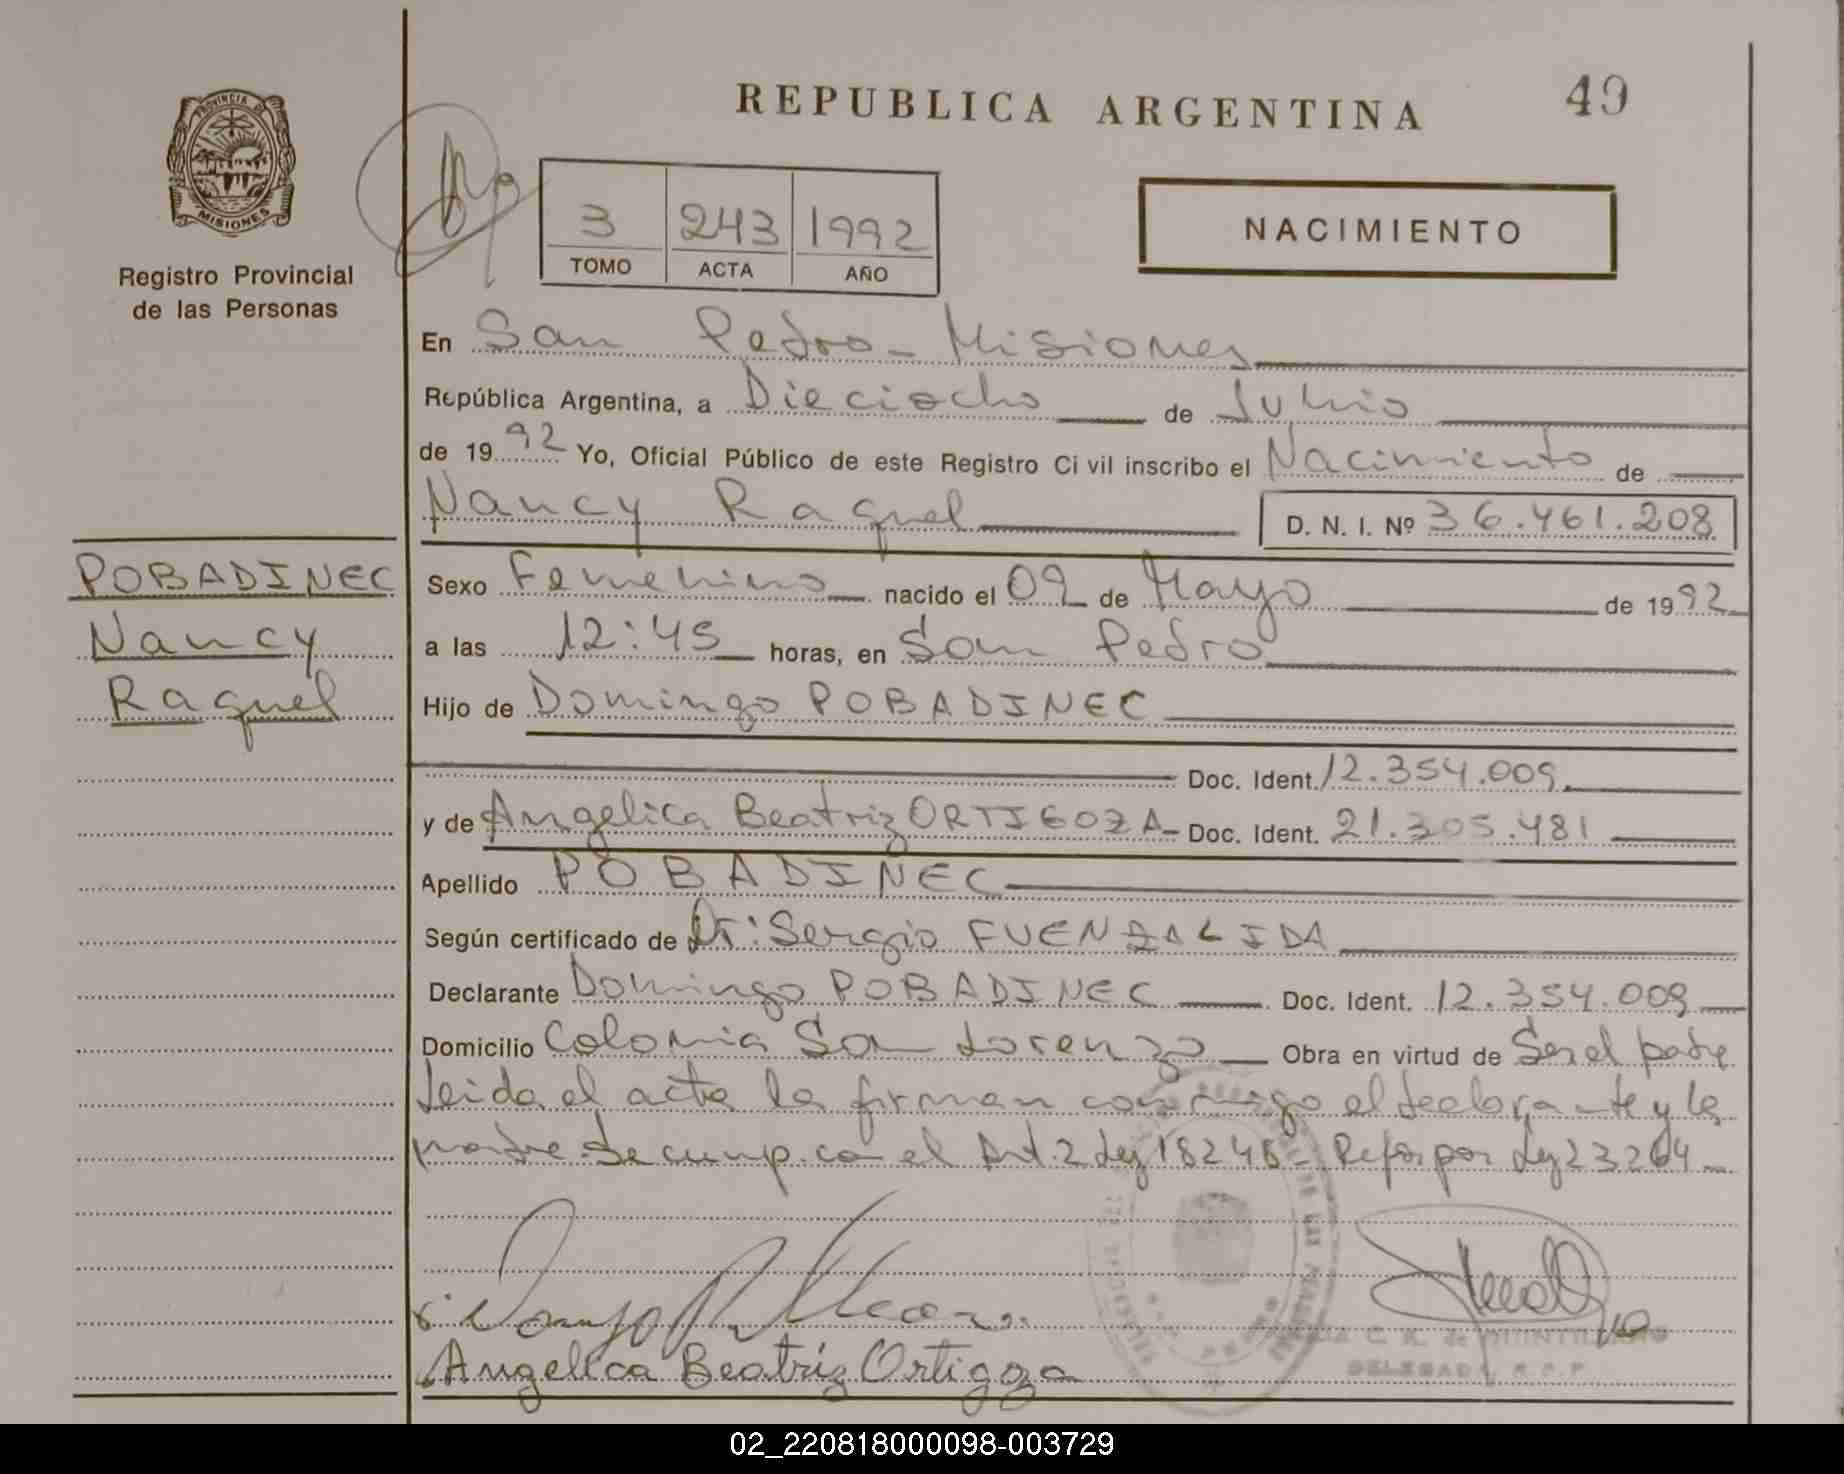 REPUBLICA ARGENTINA
49
PROVINCIA DE
MISIONES
Registro Provincial
de las Personas
3 243 1992
TOMO ACTA AÑO
NACIMIENTO
En San Pedro - Misiones
República Argentina, a Dieciocho de Junio
de 1992 Yo, Oficial Público de este Registro Civil inscribo el Nacimiento de
Nancy Raquel D. N. I. Nº 36.461.208
POBADINEC
Nancy
Raquel
Sexo Femenino nacido el 09 de Mayo de 1992
a las 12:45 horas, en San Pedro
Hijo de Domingo POBADINEC
Doc. Ident. 12.354.009
y de Angelica Beatriz ORTIGOZA - Doc. Ident. 21.305.481
Apellido POBADINEC
Según certificado de Dr: Sergio FUENZALIDA
Declarante Domingo POBADINEC Doc. Ident. 12.354.009
Domicilio Colonia San Lorenzo Obra en virtud de Ser el padre
Leida el acta la firman conmigo el declarante y la
madre. Se cump. con el Art. 2 Ley 18248 - Refor por Ley 23264
Angelica Beatriz Ortigoza
DELEGADA R.P.P.
02_220818000098-003729